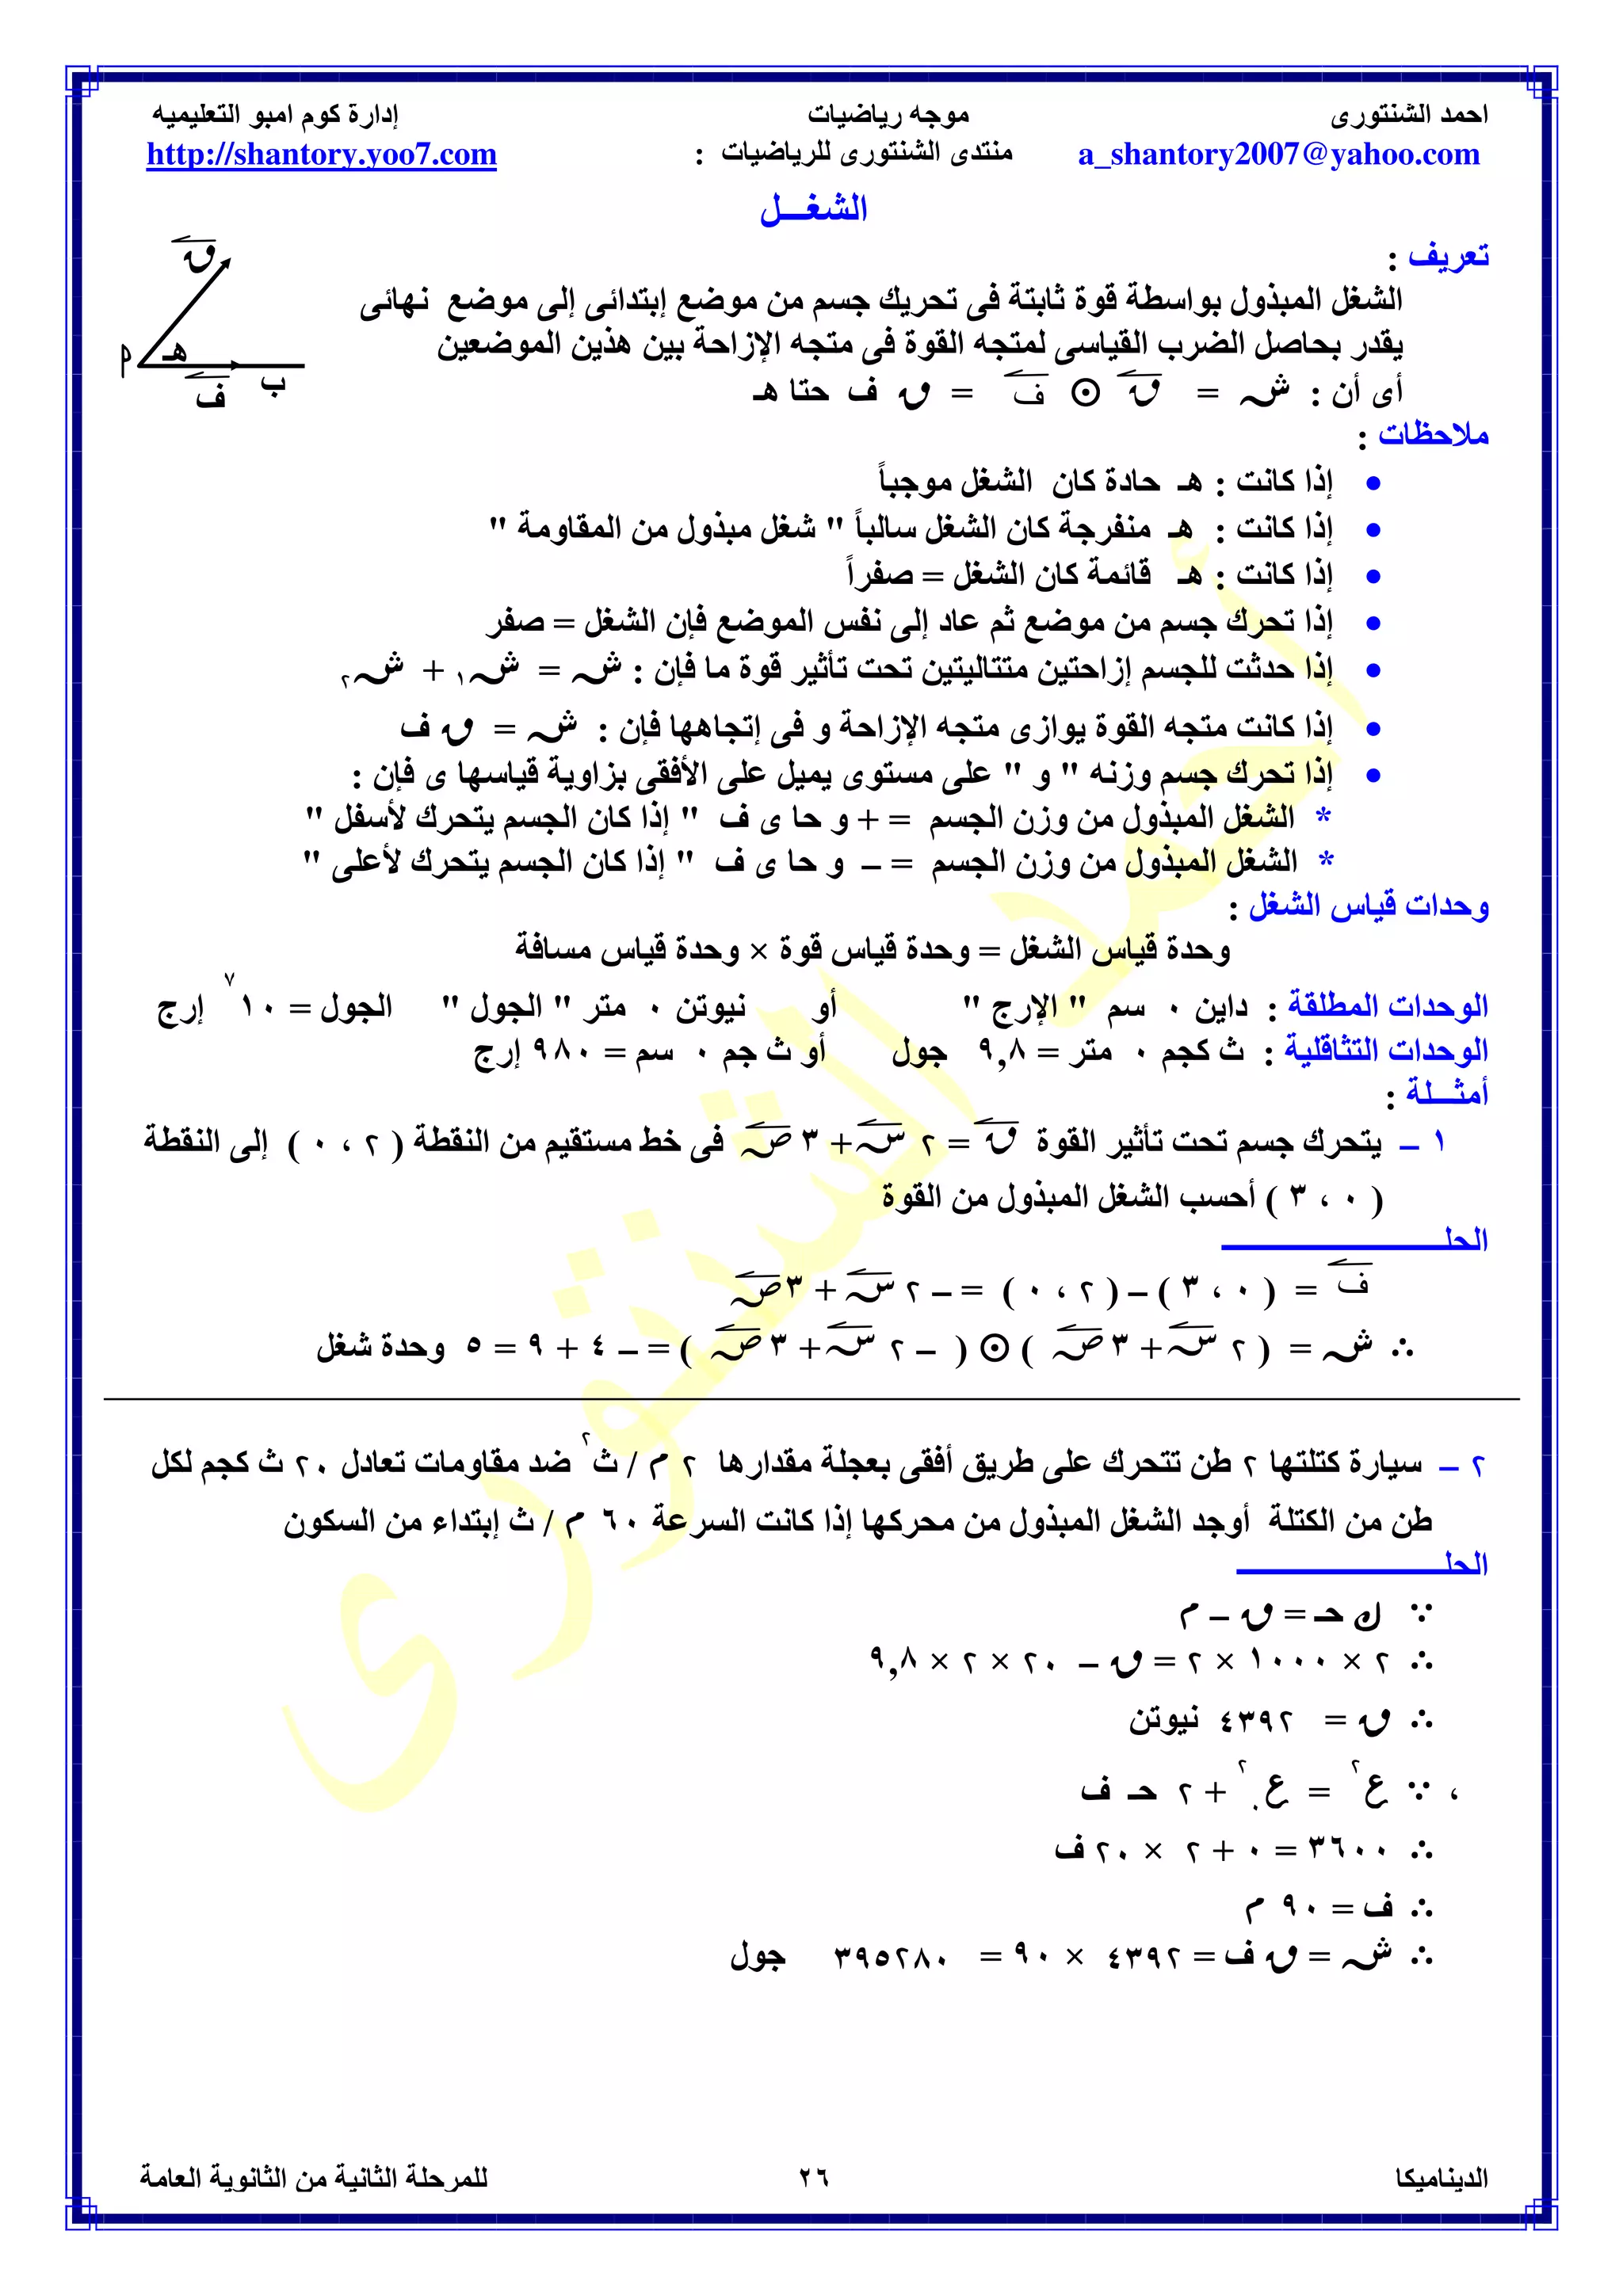 احمد الشنتورى موجه رياضيات إدارة كوم امبو التعليميه
a_shantory2007@yahoo.com منتدى الشنتورى للرياضيات : http://shantory.yoo7.com
الشغـــل
تعريف :
الشغل المبذول بواسطة قوة ثابتة فى تحريك جسم من موضع إبتدائى إلى موضع نهائى
يقدر بحاصل الضرب القياسى لمتجه القوة فى متجه الإزاحة بين هذين الموضعين
أى أن : ش = ق ⊙ ف = ق ف حتا هـ
ق
هـ
م
ب
ف
ملاحظات :
• إذا كانت : هـ حادة كان الشغل موجباً
• إذا كانت : هـ منفرجة كان الشغل سالباً " شغل مبذول من المقاومة "
• إذا كانت : هـ قائمة كان الشغل = صفراً
• إذا تحرك جسم من موضع ثم عاد إلى نفس الموضع فإن الشغل = صفر
• إذا حدثت للجسم إزاحتين متتاليتين تحت تأثير قوة ما فإن : ش = ش١ + ش٢
• إذا كانت متجه القوة يوازى متجه الإزاحة و فى إتجاهها فإن : ش = ق ف
• إذا تحرك جسم وزنه " و " على مستوى يميل على الأفقى بزاوية قياسها ى فإن :
* الشغل المبذول من وزن الجسم = + و حا ى ف " إذا كان الجسم يتحرك لأسفل "
* الشغل المبذول من وزن الجسم = – و حا ى ف " إذا كان الجسم يتحرك لأعلى "
وحدات قياس الشغل :
وحدة قياس الشغل = وحدة قياس قوة × وحدة قياس مسافة
الوحدات المطلقة : داين ٠ سم " الإرج " أو نيوتن ٠ متر " الجول " الجول = ١٠٧ إرج
الوحدات التثاقلية : ث كجم ٠ متر = ٩,٨ جول أو ث جم ٠ سم = ٩٨٠ إرج
أمثـــلة :
١ – يتحرك جسم تحت تأثير القوة ق = ٢ س + ٣ ص فى خط مستقيم من النقطة ( ٢ ، ٠ ) إلى النقطة
( ٠ ، ٣ ) أحسب الشغل المبذول من القوة
الحلــــــــــــــــــــ
ف = ( ٠ ، ٣ ) – ( ٢ ، ٠ ) = – ٢ س + ٣ ص
∴ ش = ( ٢ س + ٣ ص ) ⊙ ( – ٢ س + ٣ ص ) = – ٤ + ٩ = ٥ وحدة شغل
٢ – سيارة كتلتها ٢ طن تتحرك على طريق أفقى بعجلة مقدارها ٢ م / ث٢ ضد مقاومات تعادل ٢٠ ث كجم لكل
طن من الكتلة أوجد الشغل المبذول من محركها إذا كانت السرعة ٦٠ م / ث إبتداء من السكون
الحلــــــــــــــــــــ
∵ ك حـ = ق – م
∴ ٢ × ١٠٠٠ × ٢ = ق – ٢٠ × ٢ × ٩,٨
∴ ق = ٤٣٩٢ نيوتن
، ∵ ع٢ = ع٠٢ + ٢ حـ ف
∴ ٣٦٠٠ = ٠ + ٢ × ٢٠ ف
∴ ف = ٩٠ م
∴ ش = ق ف = ٤٣٩٢ × ٩٠ = ٣٩٥٢٨٠ جول
أحمد الشنتورى
الديناميكا ٢٦ للمرحلة الثانية من الثانوية العامة